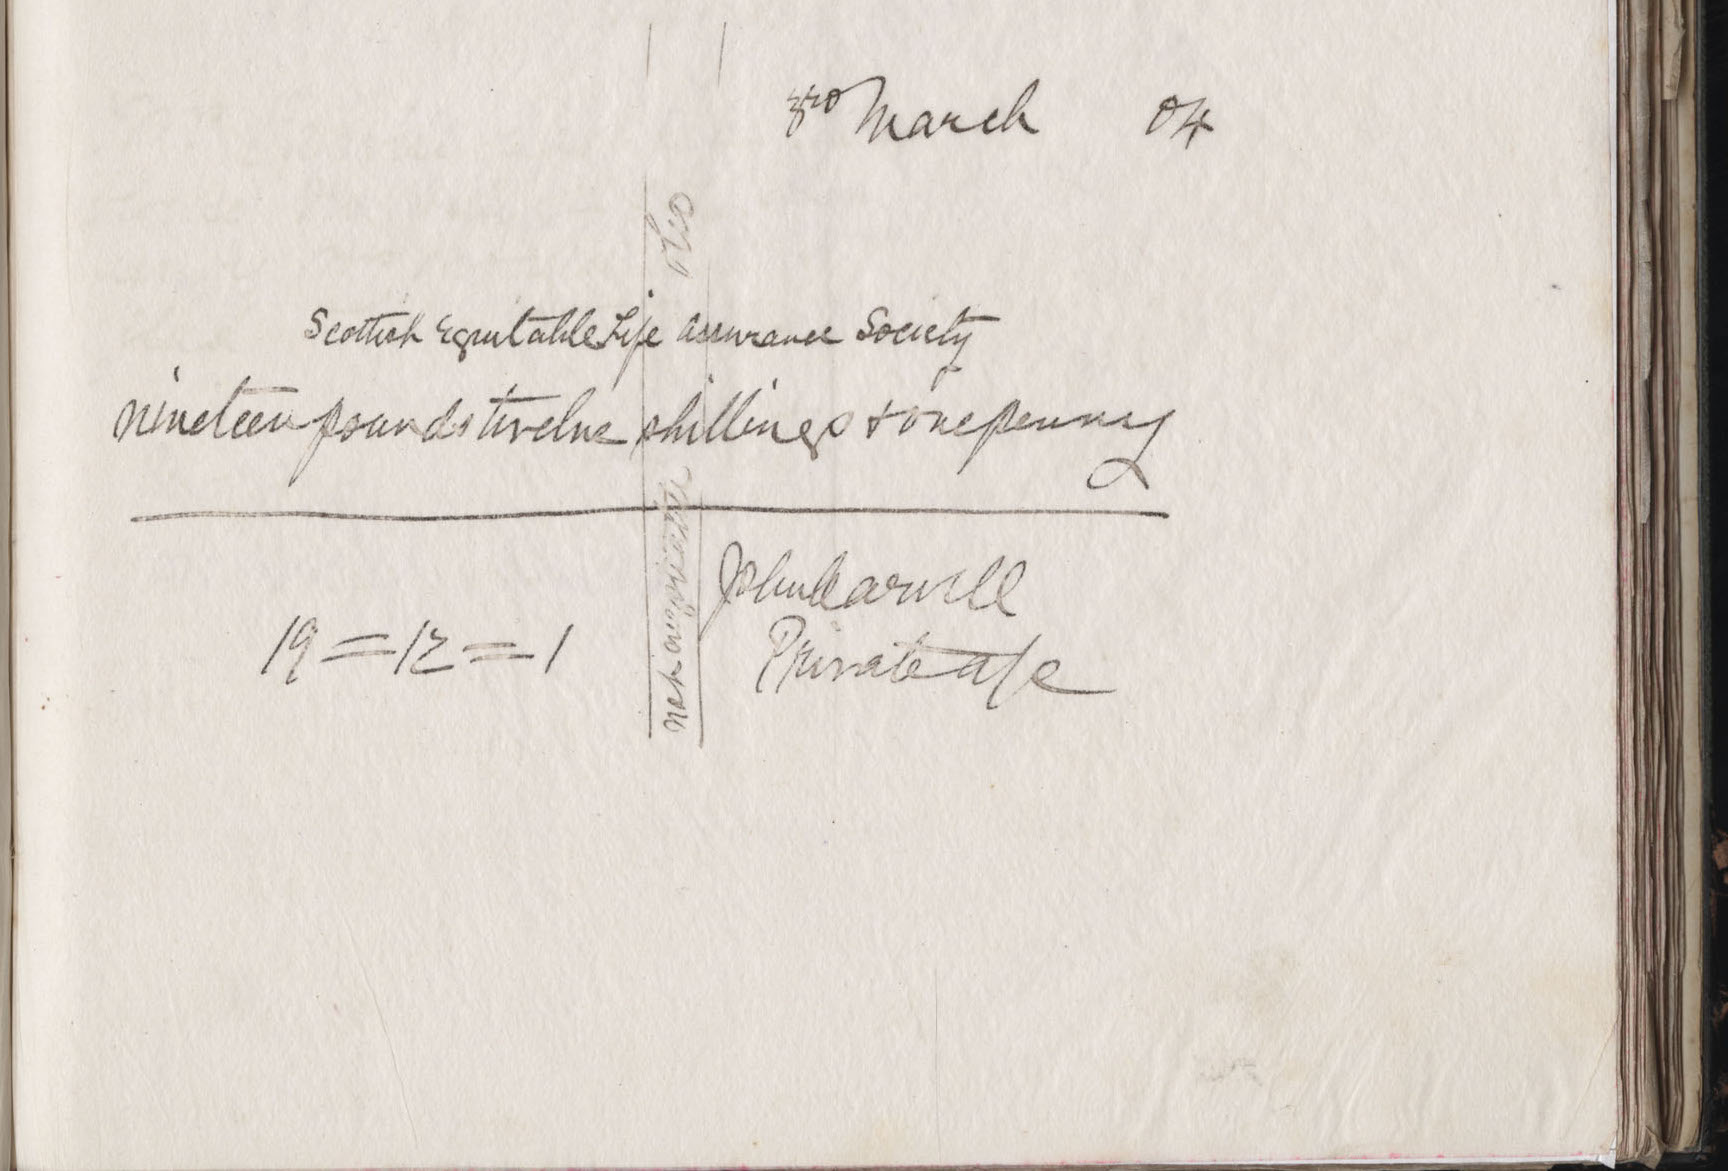 3rd March 04
Scottish Equitable Life Assurance Society
nineteen pounds twelve shillings + one penny
19=12=1
John Carvill
Private a/c
not negotiable